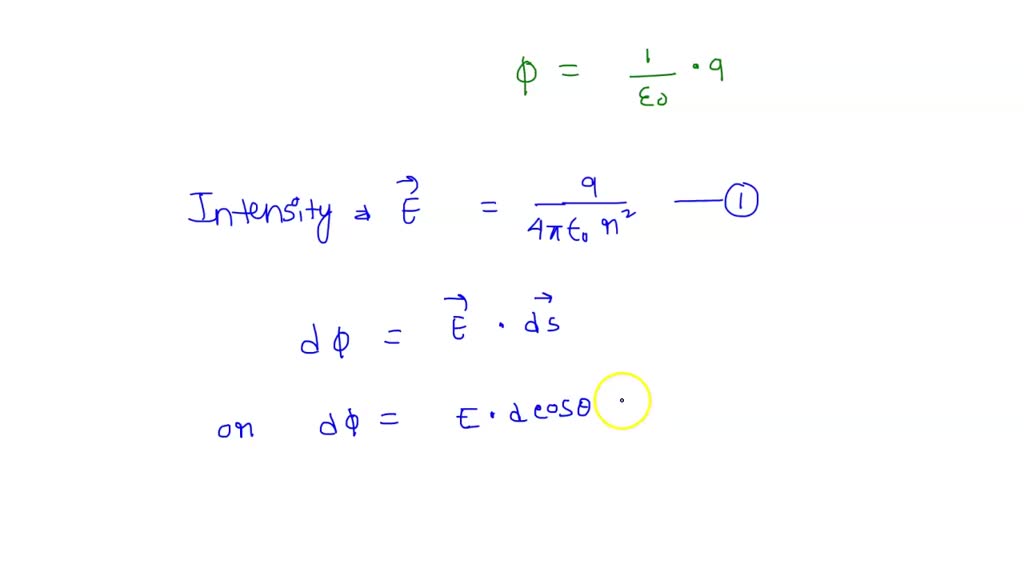 ϕ = 1/ε0 · q
Intensity → E⃗ = q/4πε0 r² — ①
dϕ = E⃗ · ds⃗
or dϕ = E · d cosθ